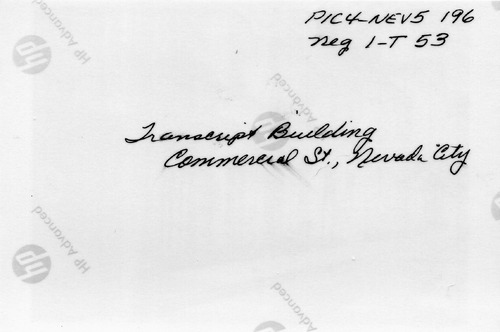 PIC4-NEV5 196
Neg 1-T 53
HP Advanced
HP Advanced
Transcript Building
Commercial St., Nevada City
HP Advanced
HP Advanced